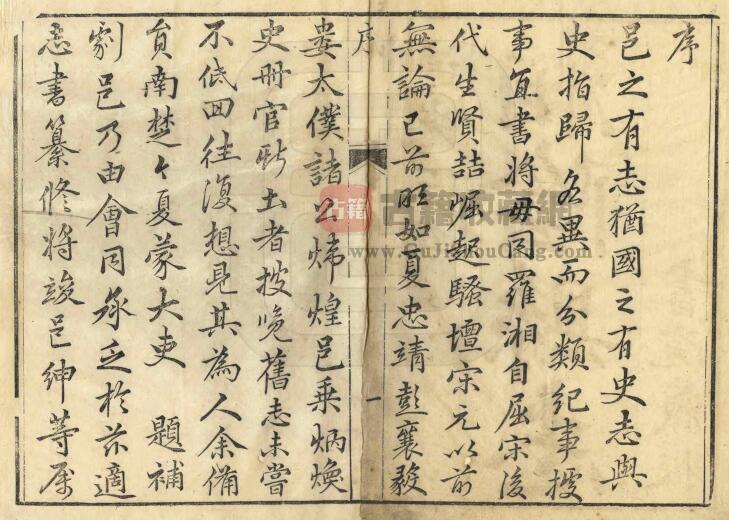 序
邑之有志猶國之有史志與
史指歸各異而分類紀事援
事直書將毋同羅湘自屈宋後
代生賢喆崛起騷壇宋元以前
無論已前明如夏忠靖彭襄毅
序
一
婁太僕諸公煒煌邑乘炳煥
史冊官斯土者披覽舊志未嘗
不低回往復想見其為人余備
員南楚冬夏蒙大吏 題補
劇邑乃由會同承乏於茲適
志書纂修將竣邑紳等屬
古籍
古籍收藏網
www.GuJiShouCang.com